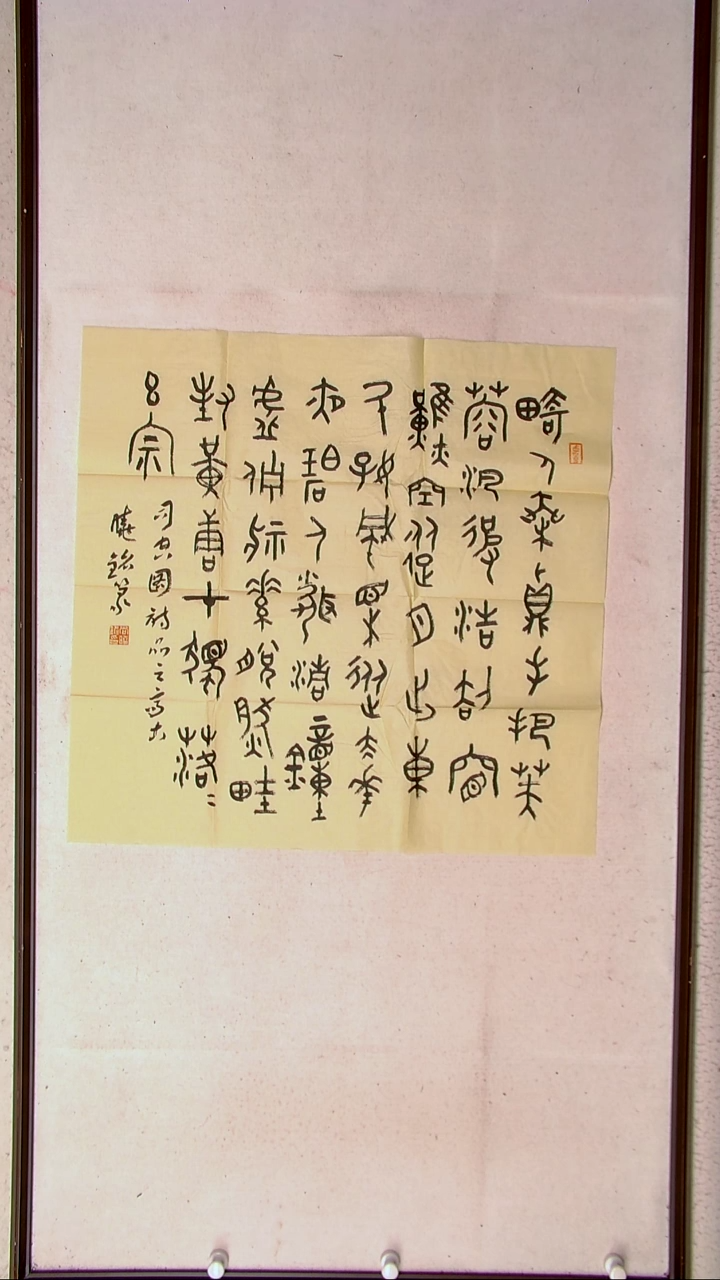 畸人乘真手把芙
蓉汎彼浩劫窅
然空蹤月出東
斗好風相從太華
夜碧人聞清鐘
虛佇神素脫然畦
封黃唐在獨落〻
玄宗
司空圖詩品之高古
曉銘篆